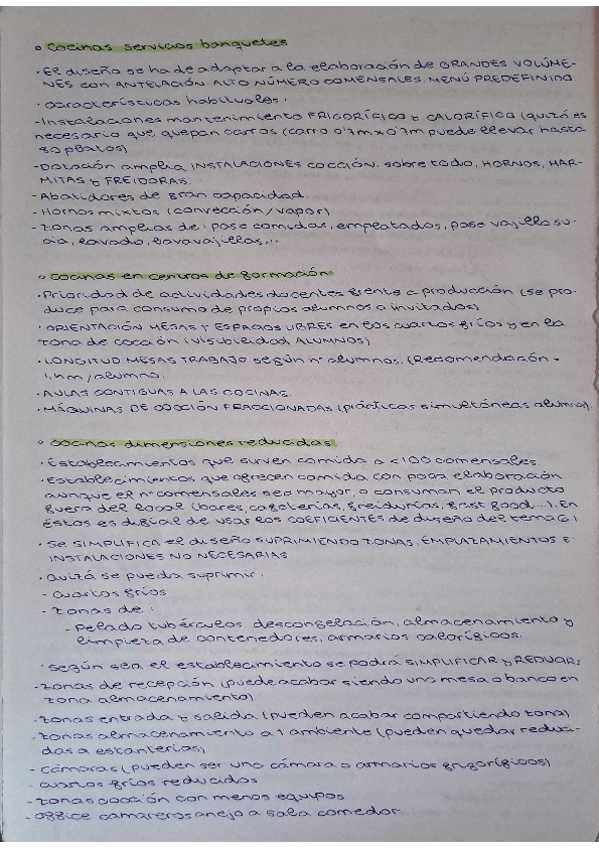 ° Cocinas servicios banquetes
· El diseño se ha de adaptar a la elaboración de GRANDES VOLÚME-
NES con ANTELACIÓN. ALTO NÚMERO COMENSALES. MENÚ PREDEFINIDO
· Características habituales:
- Instalaciones mantenimiento FRIGORÍFICO y CALORÍFICO (quizá es
necesario que quepan carros (carro 0'7m x 0'7m puede llevar hasta
80 platos)
- Dotación amplia INSTALACIONES COCCIÓN. sobre todo, HORNOS, MAR-
MITAS y FREIDORAS.
- Abatidores de gran capacidad.
- Hornos mixtos (convección/vapor)
- Zonas amplias de: pase comidas, emplatados, pase vajilla su-
cia, lavado, lavavajillas,...
° Cocinas en centros de formación
· Prioridad de actividades docentes frente a producción (se pro-
duce para consumo de propios alumnos o invitados)
· ORIENTACIÓN MESAS Y ESPACIOS LIBRES en los cuartos fríos y en la
zona de cocción (visibilidad ALUMNOS)
· LONGITUD MESAS TRABAJO según nº alumnos. (Recomendación =
1,4m/alumno.
· AULAS CONTIGUAS A LAS COCINAS.
· MÁQUINAS DE COCCIÓN FRACCIONADAS (prácticas simultáneas alumno).
° Cocinas dimensiones reducidas
· Establecimientos que sirven comida a <100 comensales
· Establecimientos que ofrecen comida con poca elaboración
aunque el nº comensales sea mayor, o consuman el producto
fuera del local (bares, cafeterías, freidurías, fast food...). En
éstos es difícil de usar los COEFICIENTES de diseño del tema 6!
· Se SIMPLIFICA el diseño SUPRIMIENDO ZONAS, EMPLAZAMIENTOS E
INSTALACIONES NO NECESARIAS
· Quizá se pueda suprimir:
- Cuartos fríos
- Zonas de:
- Pelado tubérculos, descongelación, almacenamiento y
limpieza de contenedores, armarios caloríficos.
· Según sea el establecimiento se podrá SIMPLIFICAR y REDUCIR:
- Zonas de recepción (puede acabar siendo una mesa o banco en
zona almacenamiento)
- Zonas entrada y salida (pueden acabar compartiendo zona)
- Zonas almacenamiento a 1 ambiente (pueden quedar reduci-
das a estanterías)
- Cámaras (pueden ser una cámara o armarios frigoríficos)
- Cuartos fríos reducidos
- Zonas cocción con menos equipos
- Office camareros anejo a sala comedor.